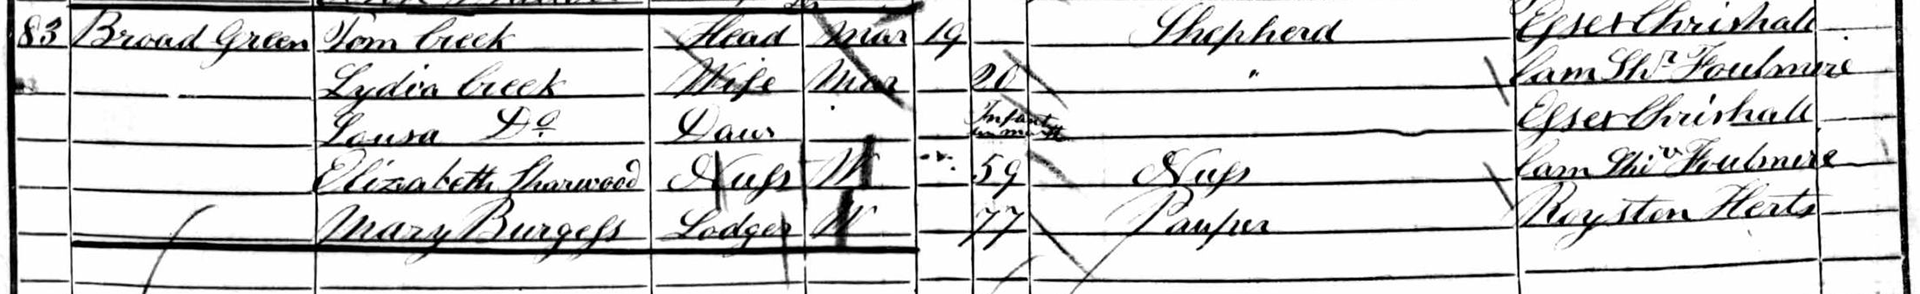 83 Broad Green Tom Creek Head Mar 19 Shepherd Essex Chrishall
Lydia Creek Wife Mar 20 " Cam Shr Foulmire
Lousa Do Daur Infant Essex Chrishall
Elizabeth Sharwood Nuss W 59 Nuss Cam Shir Foulmire
Mary Burgess Lodger W 77 Pauper Royston Herts